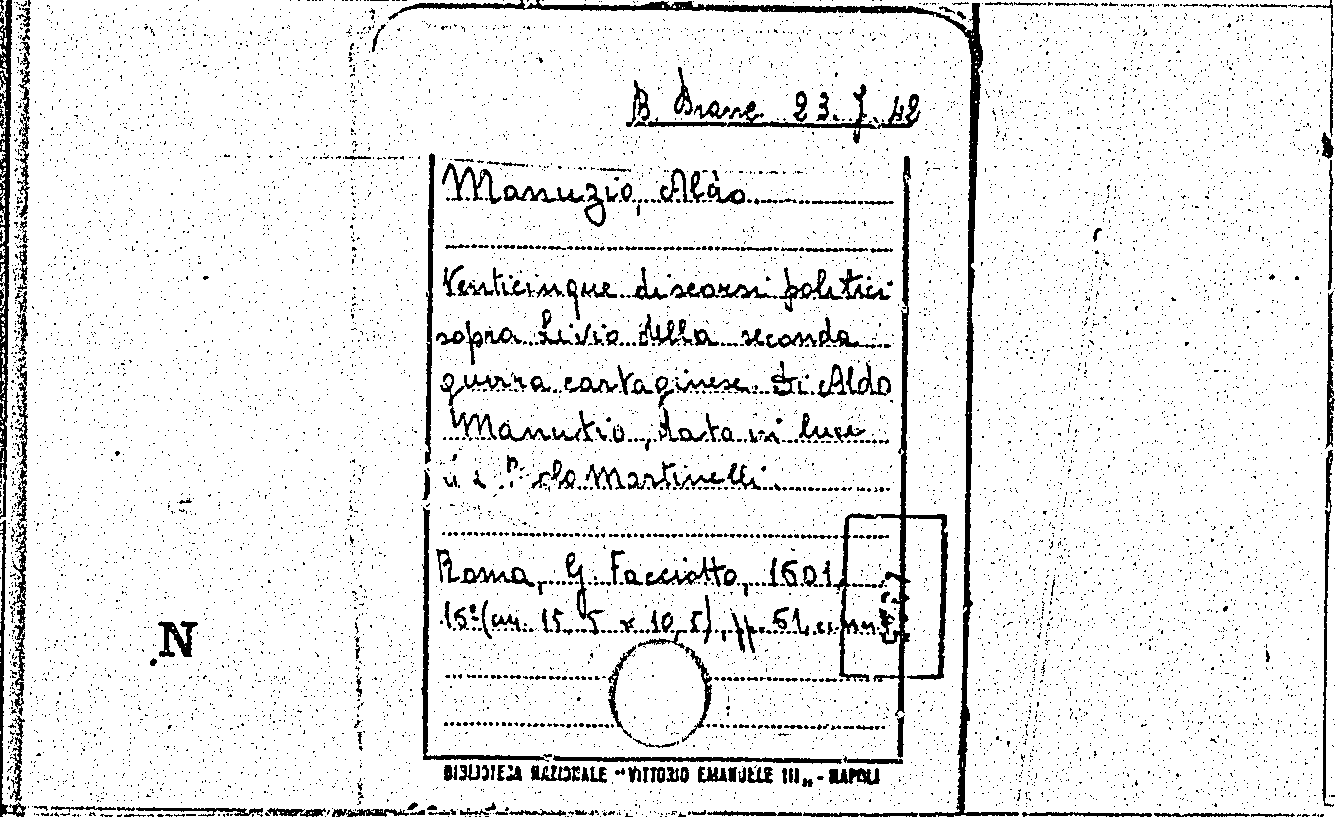 B. Branc. 23. J. 42
Manuzio, Aldo
Venticinque discorsi politici
sopra Livio della seconda
guerra cartaginese. Di Aldo
Manutio, data in luce
Martinelli.
Roma, G. Facciotto, 1601,
16° (cm. 15,5 x 10,5), pp. 51,
N
BIBLIOTECA NAZIONALE "VITTORIO EMANUELE III„ - NAPOLI